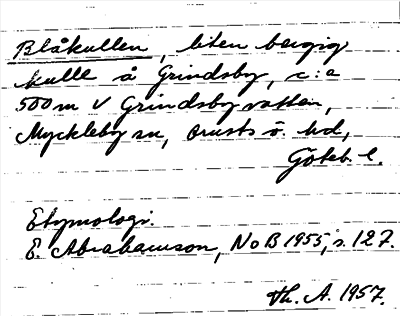 Blåkullen, liten bergig
kulle å Grindsby, c:a
500 m V Grindsbyvatten,
Myckleby sn, Orusts ö. hd,
Göteb. l.
Etymologi.
E. Abrahamson, NoB 1955, s. 127.
Th. A. 1957.